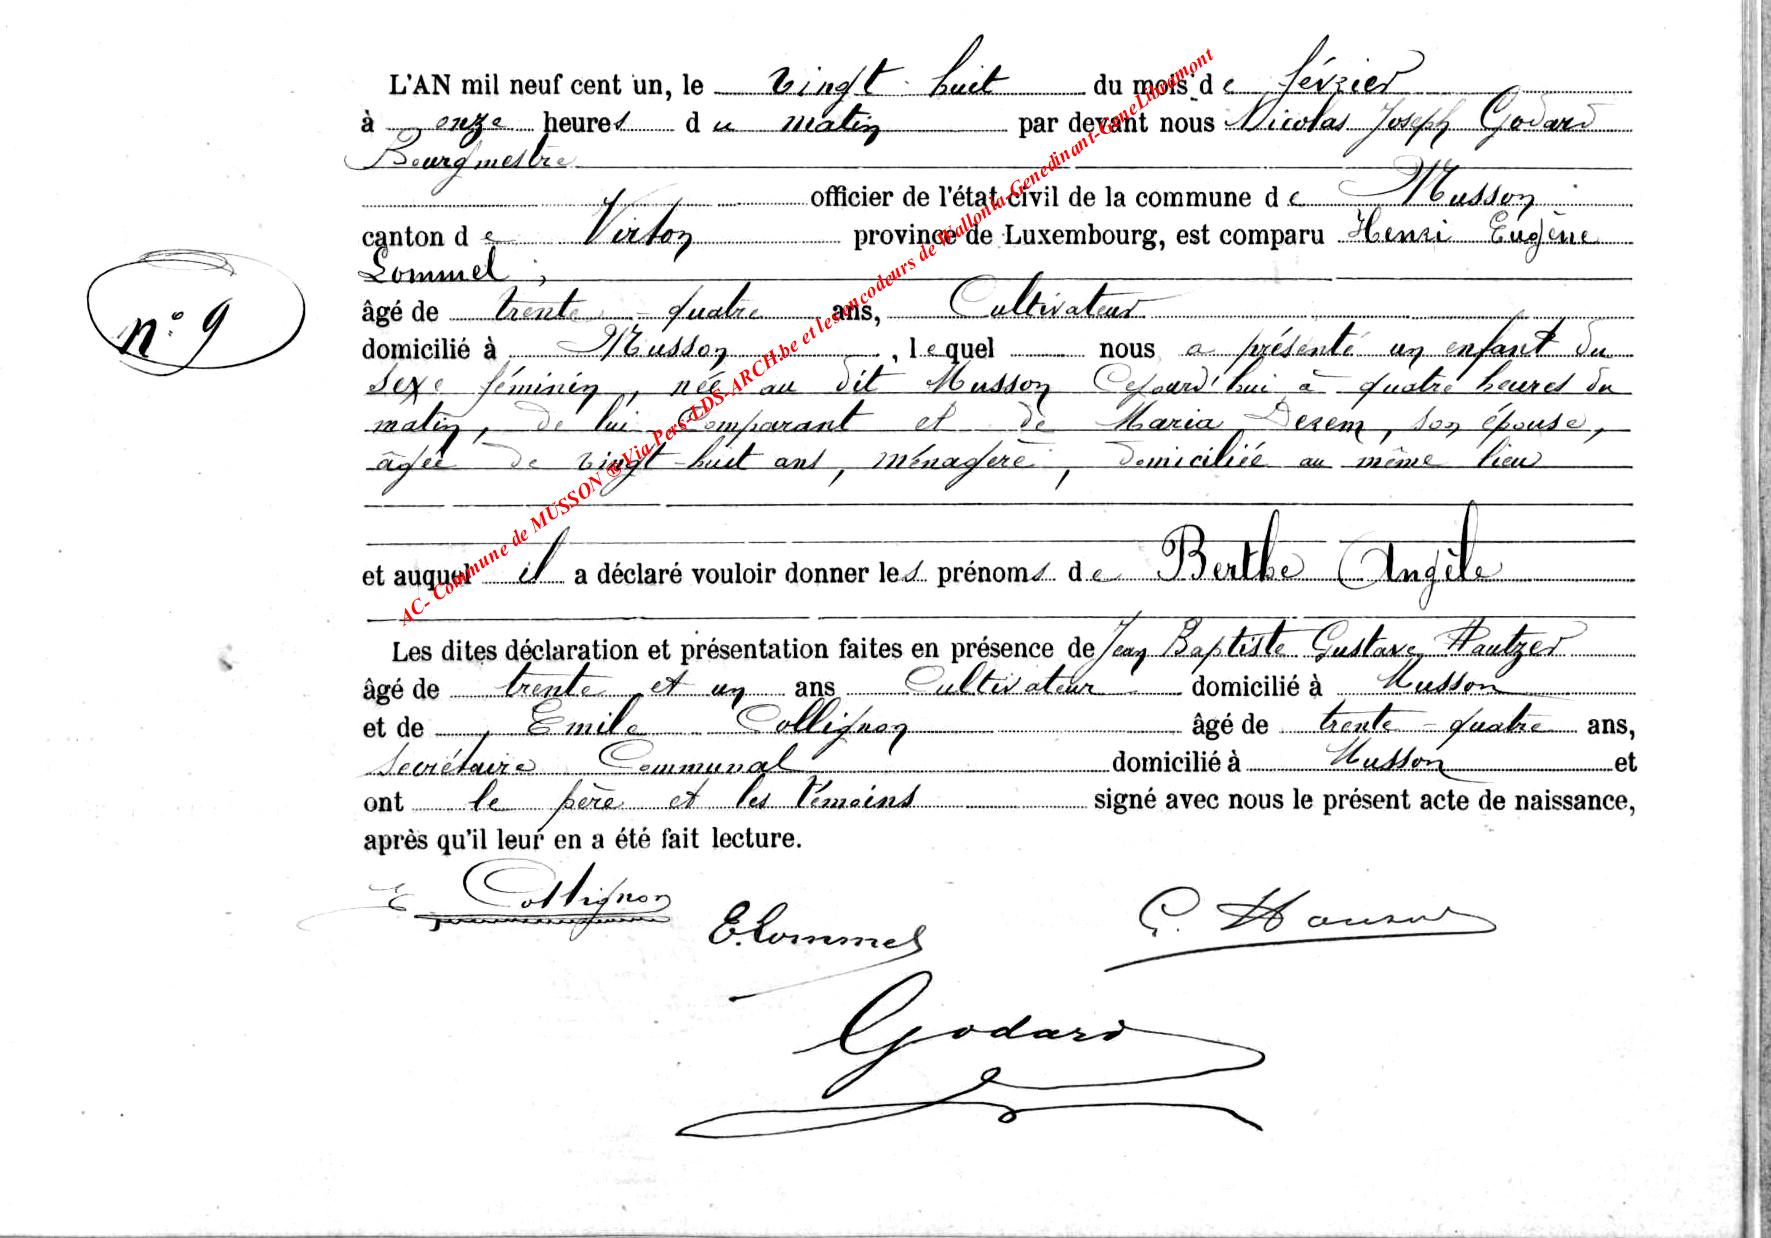 L'AN mil neuf cent un, le vingt huit du mois de février
à onze heures du matin par devant nous Nicolas Joseph Godard
Bourgmestre
officier de l'état civil de la commune de Musson
canton de Virton province de Luxembourg, est comparu Henri Eugène
Lommel ;
n° 9
âgé de trente-quatre ans, Cultivateur
domicilié à Musson, lequel nous a présenté un enfant du
sexe féminin, née au dit Musson Cejourd'hui à quatre heures du
matin, de lui Comparant et de Maria Derem, son épouse,
âgée de vingt-huit ans, ménagère, domiciliée au même lieu
et auquel il a déclaré vouloir donner les prénoms de Berthe Angèle
Les dites déclaration et présentation faites en présence de Jean Baptiste Gustave Hautzer
âgé de trente et un ans Cultivateur domicilié à Musson
et de, Emile Collignon âgé de trente-quatre ans,
Secrétaire Communal domicilié à Musson et
ont le père et les témoins signé avec nous le présent acte de naissance,
après qu'il leur en a été fait lecture.
E Collignon
E. Lommel
G.
Godard
AC- Commune de MUSSON @Via-Pers-LDS-ARCH.be et les encodeurs de Wallonia-Genedinant-GeneLibramont